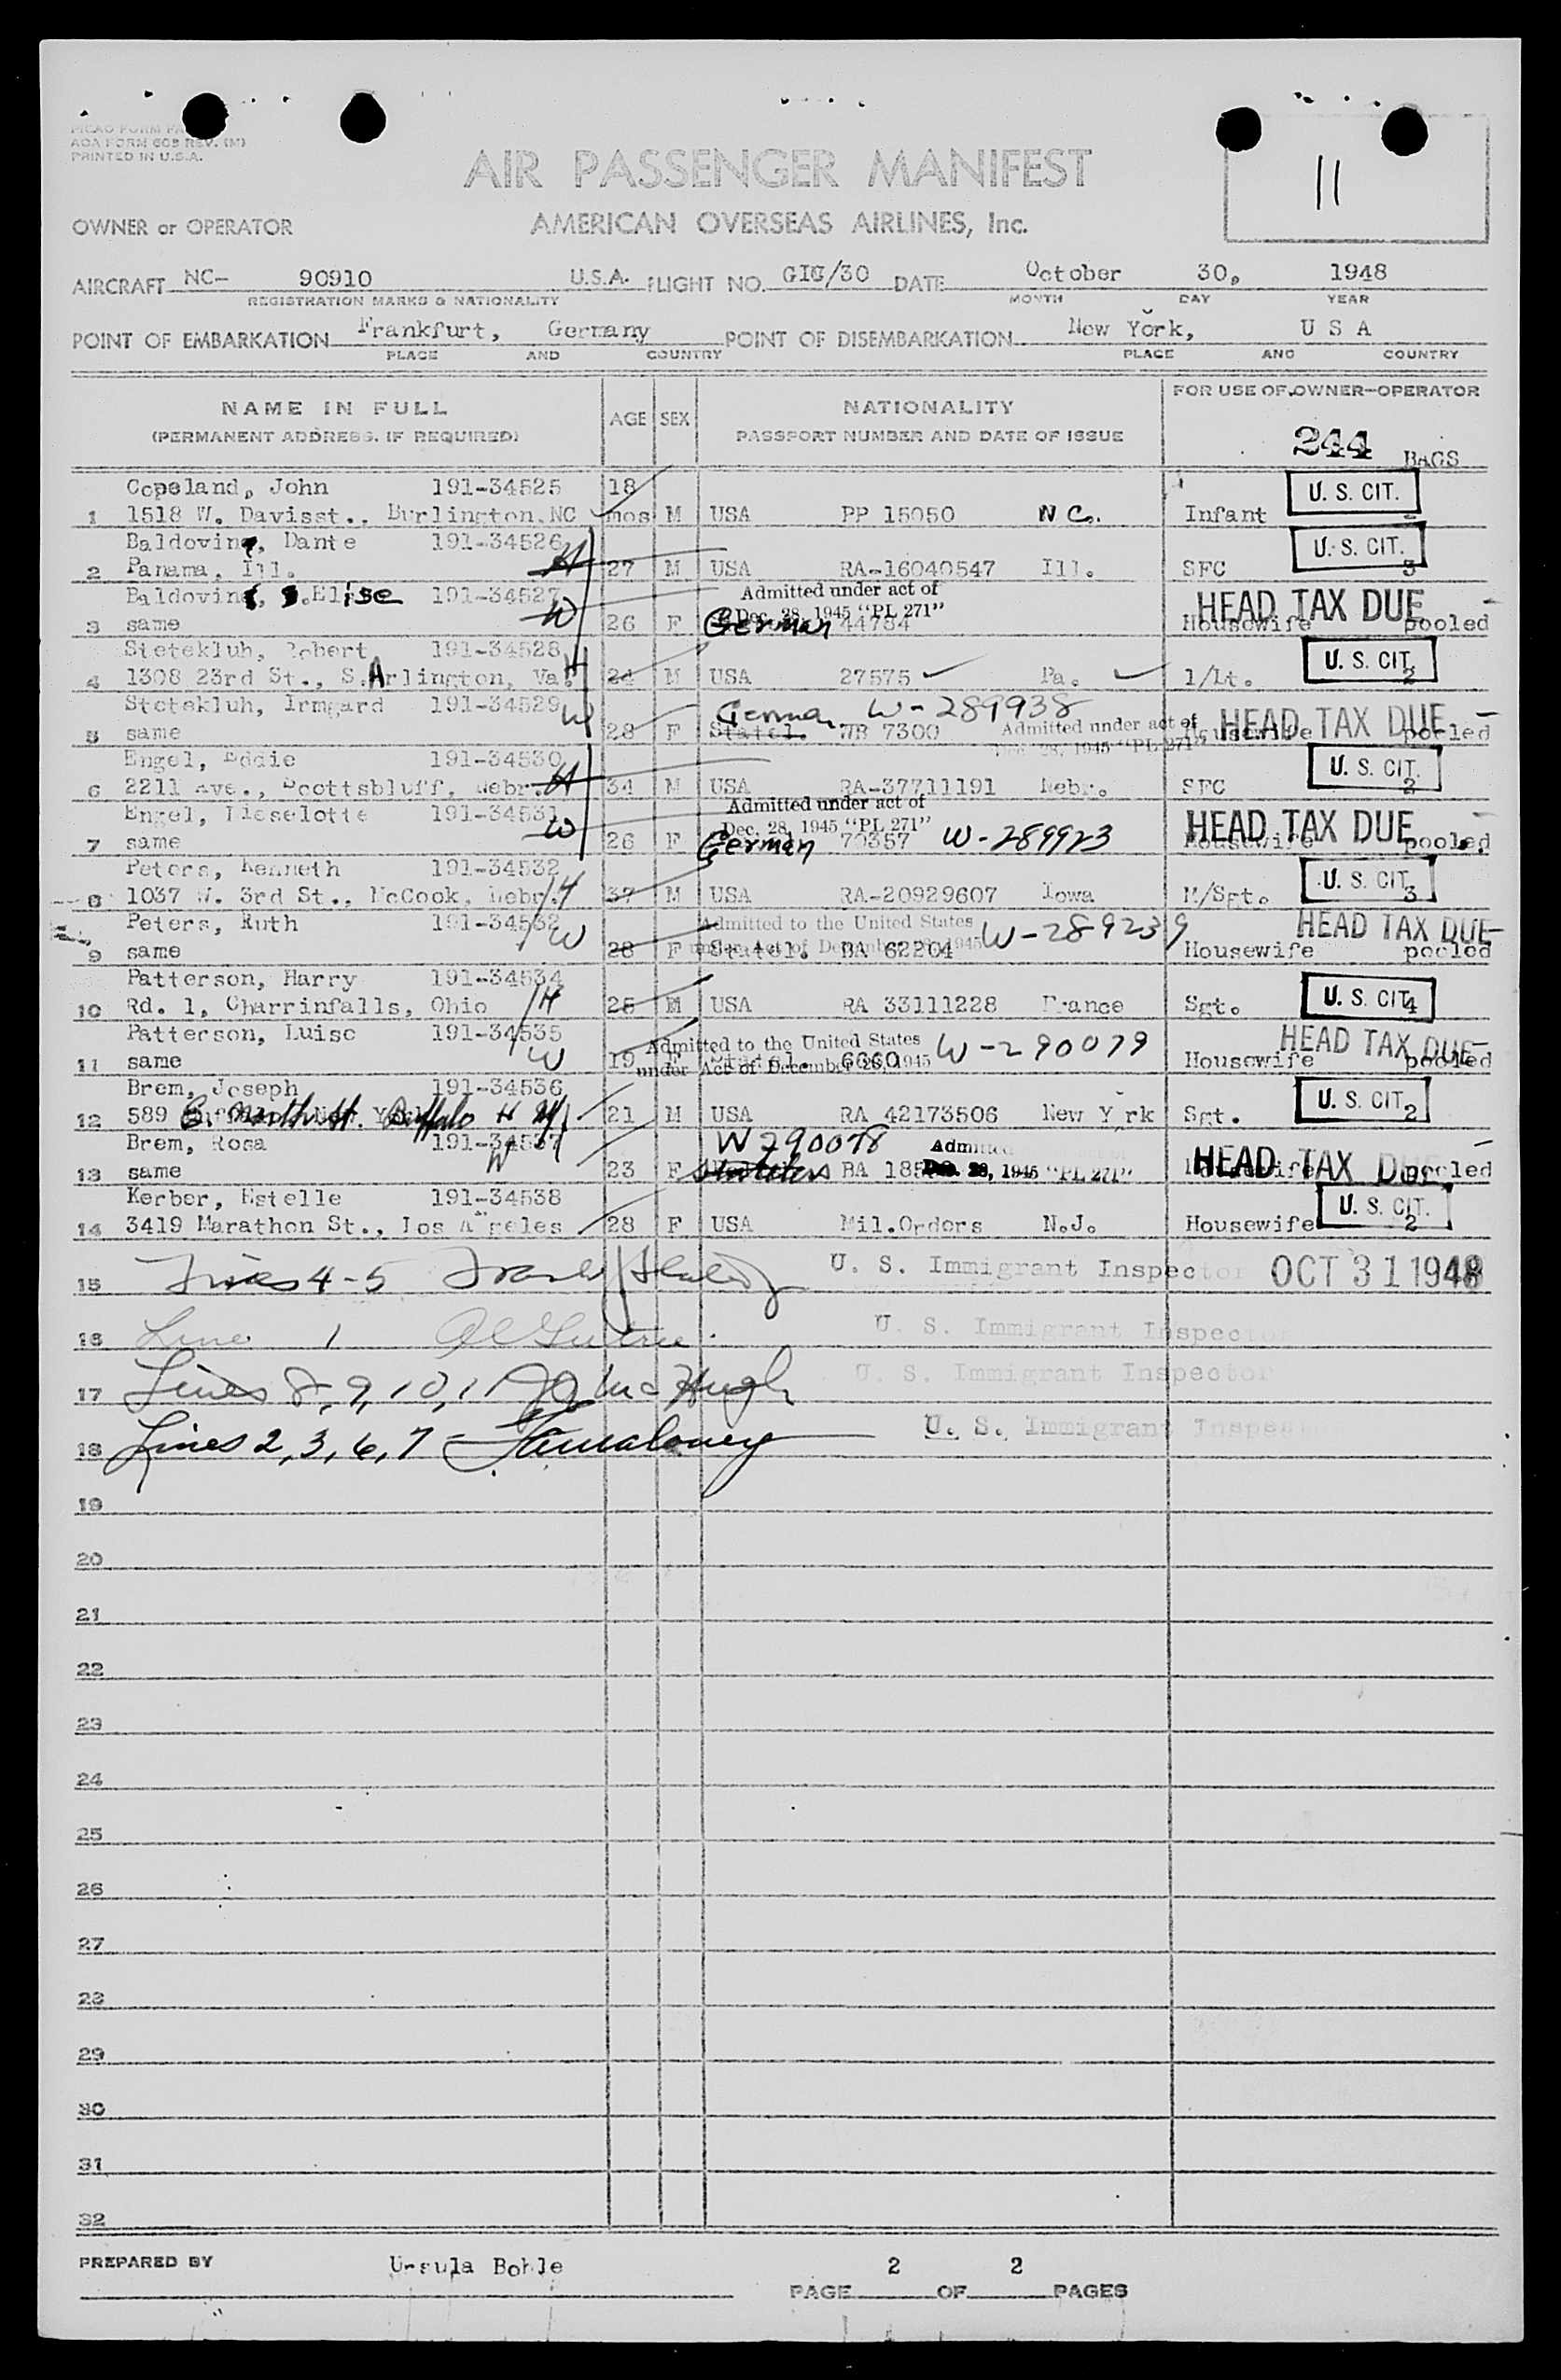 PRINTED IN U.S.A.
11
AIR PASSENGER MANIFEST
OWNER or OPERATOR AMERICAN OVERSEAS AIRLINES, Inc.
AIRCRAFT NC- 90910 U.S.A. FLIGHT NO. DATE October 30, 1948
REGISTRATION MARKS & NATIONALITY MONTH DAY YEAR
POINT OF EMBARKATION Frankfurt, Germany POINT OF DISEMBARKATION New York, U S A
PLACE AND COUNTRY PLACE AND COUNTRY
NAME IN FULL AGE SEX NATIONALITY FOR USE OF OWNER-OPERATOR
(PERMANENT ADDRESS, IF REQUIRED) PASSPORT NUMBER AND DATE OF ISSUE
244 BAGS
Copeland, John 191-34525 18 U. S. CIT.
1 1518 W. Davisst., Burlington, NC mos M USA PP 15050 N C. Infant
Baldovin, Dante 191-34526 H U. S. CIT.
2 Panama, Ill. 27 M USA RA-16040547 Ill. SFC 3
Baldovin, Elise 191-34527 W Admitted under act of HEAD TAX DUE
Dec. 28, 1945 "PL 271"
3 same 26 F German 44784 Housewife pooled
Stetekluh, Robert 191-34528 H U. S. CIT.
4 1308 23rd St., S. Arlington, Va. 24 M USA 27575 Pa. 1/Lt. 2
Stetekluh, Irmgard 191-34529 W German W-289938 HEAD TAX DUE
5 same 28 F Statel. WB 7300 Admitted under act of Housewife pooled
Dec. 28, 1945 "PL 271"
Engel, Eddie 191-34530 U. S. CIT.
6 2211 Ave., Scottsbluff, Nebr. H 34 M USA RA-37711191 Nebr. SFC 2
Engel, Lieselotte 191-34531 W Admitted under act of HEAD TAX DUE
Dec. 28, 1945 "PL 271"
7 same 26 F German 70357 W-289923 Housewife pooled
Peters, Kenneth 191-34532 U. S. CIT.
8 1037 W. 3rd St., McCook, Nebr. H 37 M USA RA-20929607 Iowa M/Sgt. 3
Peters, Ruth 191-34532 W Admitted to the United States W-289239 HEAD TAX DUE
9 same 28 F Statel. BA 62204 Housewife pooled
Patterson, Harry 191-34534
10 Rd. 1, Charrinfalls, Ohio H 25 M USA RA 33111228 France Sgt. U. S. CIT. 4
Patterson, Luise 191-34535 Admitted to the United States W-290079 HEAD TAX DUE
11 same W 19 F Statel. 6660 under Act of December 28, 1945 Housewife pooled
Brem, Joseph 191-34536 U. S. CIT.
12 589 Buffalo H 21 M USA RA 42173506 New York Sgt. 2
Brem, Rosa 191-34537 W W290078 Admitted HEAD TAX DUE
13 same 23 F BA Dec. 28, 1945 "PL 271" Housewife pooled
Kerber, Estelle 191-34538 U. S. CIT.
14 3419 Marathon St., Los Angeles 28 F USA Mil.Orders N.J. Housewife 2
15 Lines 4-5 U. S. Immigrant Inspector OCT 31 1948
16 Line 1 U. S. Immigrant Inspector
17 Lines 8, 9, 10, 11 McHugh U. S. Immigrant Inspector
18 Lines 2, 3, 6, 7 - U. S. Immigrant Inspector
19
20
21
22
23
24
25
26
27
28
29
30
31
32
PREPARED BY Ursula Bohle PAGE 2 OF 2 PAGES